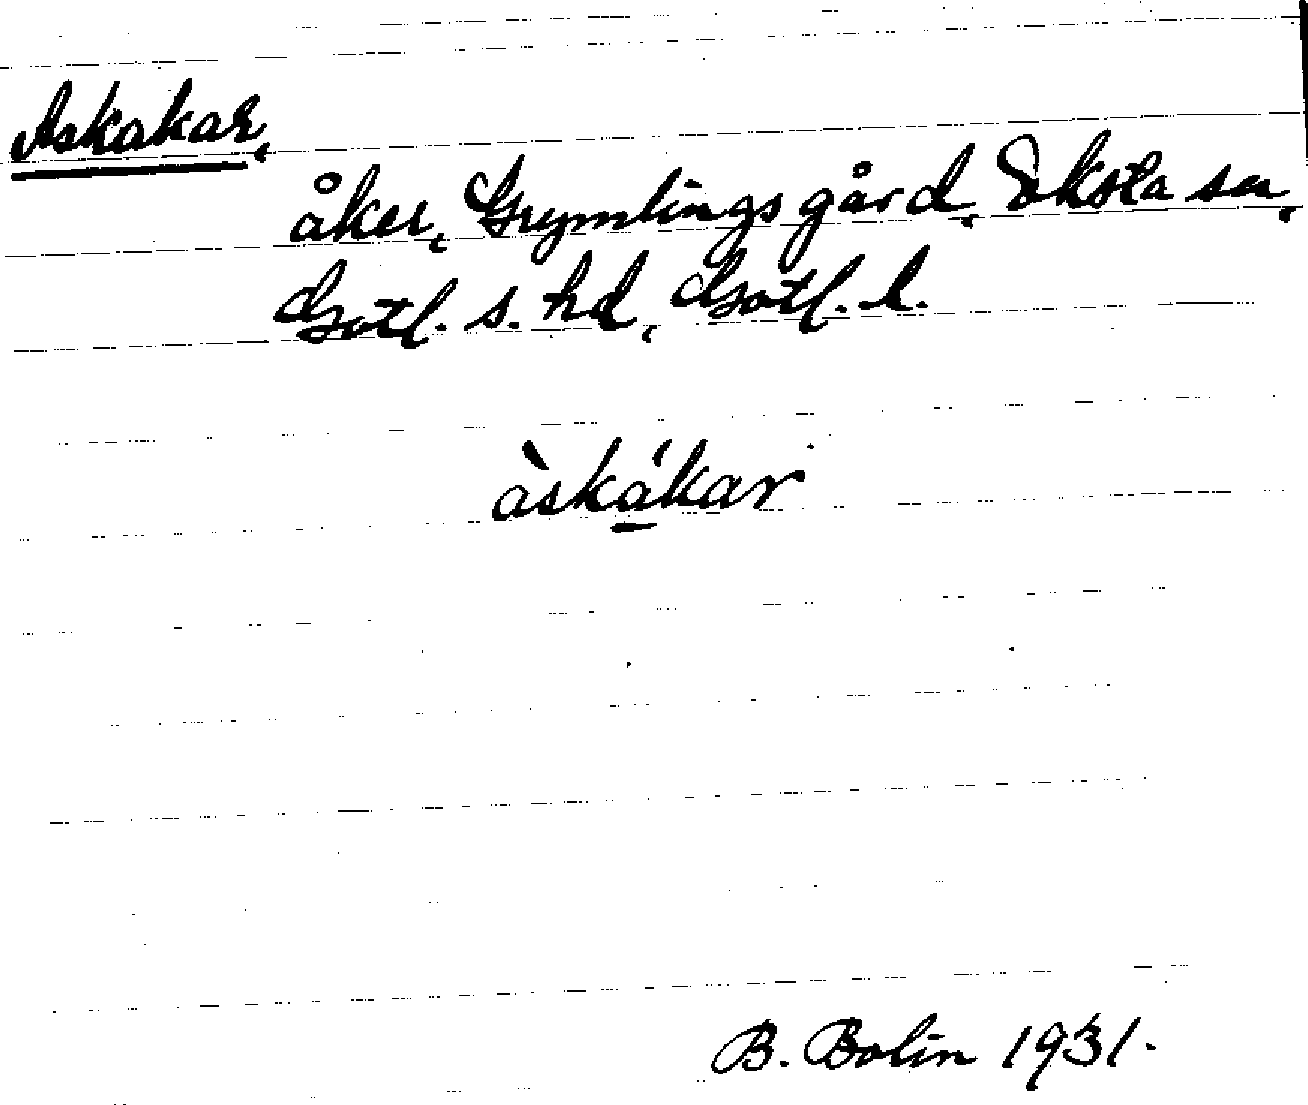 Askakar,
åker, Grymlings gård, Eksta sn,
Gotl. s. hd, Gotl. l.
àskákar
B. Bolin 1931.